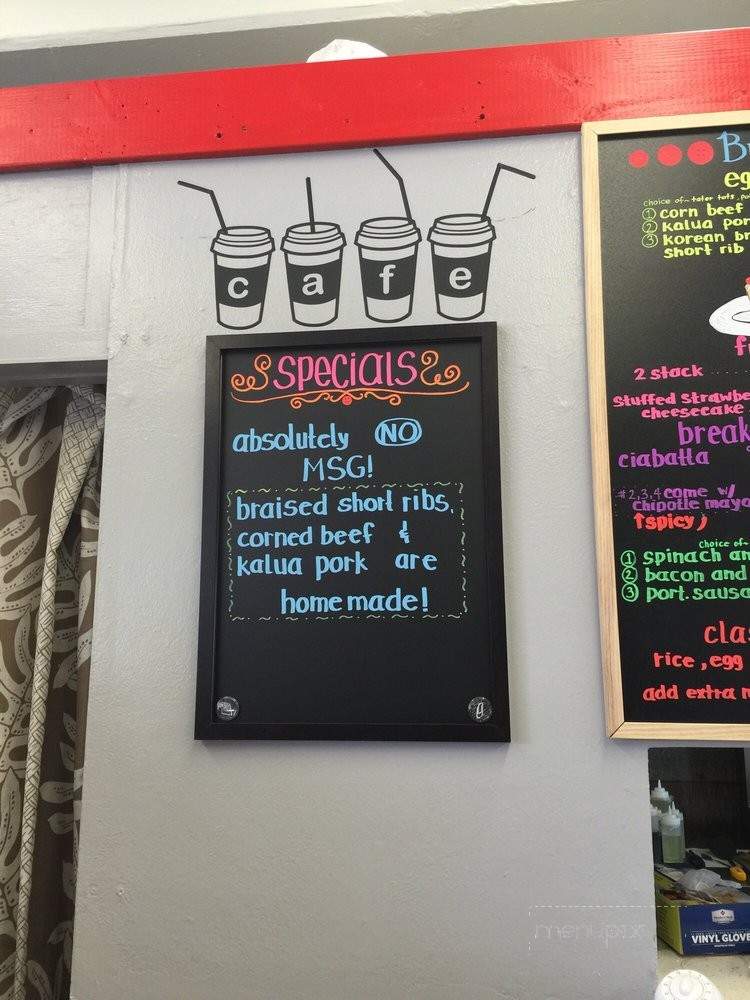 c a f e
specials
absolutely NO
MSG!
braised short ribs,
corned beef &
kalua pork are
homemade!
B
eg
choice of~ tater tots,
1 corn beef
2 kalua por
3 korean br
short rib
2 stack ....
Stuffed Strawbe
cheesecake
break
ciabatta
#2,3,4 come w/
chipotle mayo
↑spicy)
choice of~
1 spinach an
2 bacon and
3 port. sausa
clas
rice, egg
add extra m
VINYL GLOVE
menupix